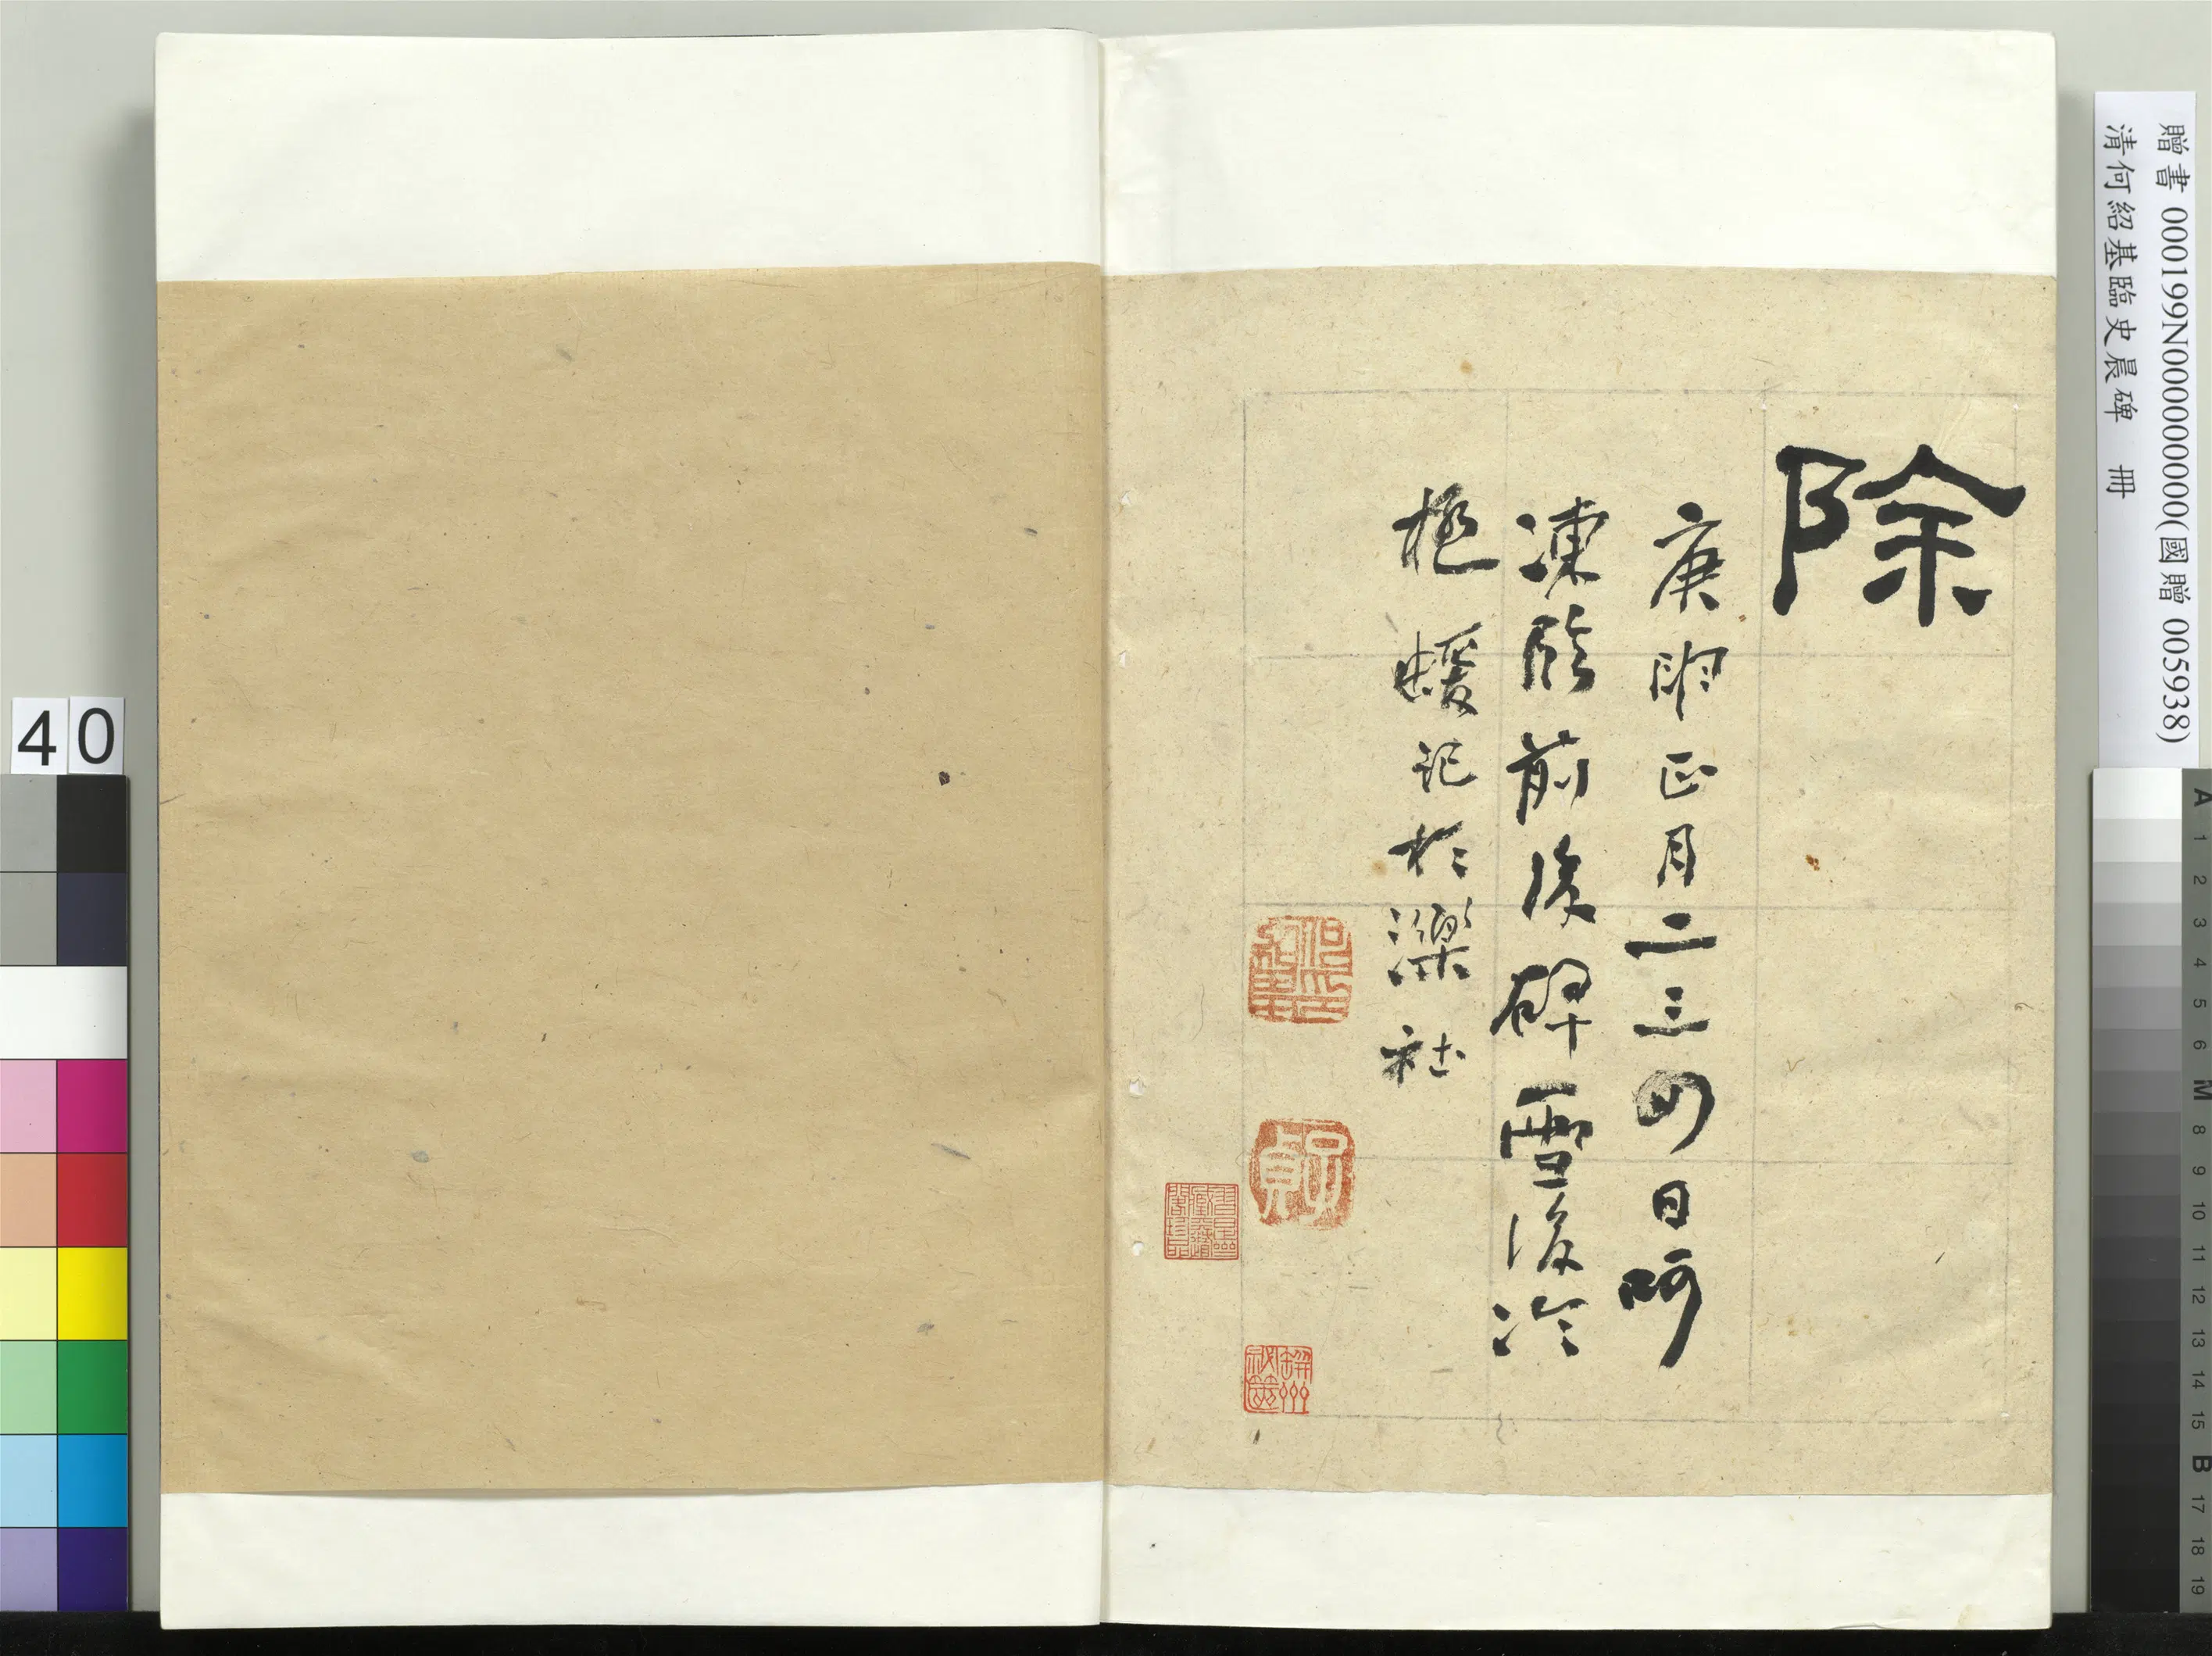 贈書 000199N000000000(國贈 005938)
清何紹基臨史晨碑 冊
除
庚申正月二三四日呵
凍臨前後碑雪後冷
極蝯記於濼社
子貞
40
A 1 2 3 4 5 6 M 8 9 10 11 12 13 14 15 B 17 18 19